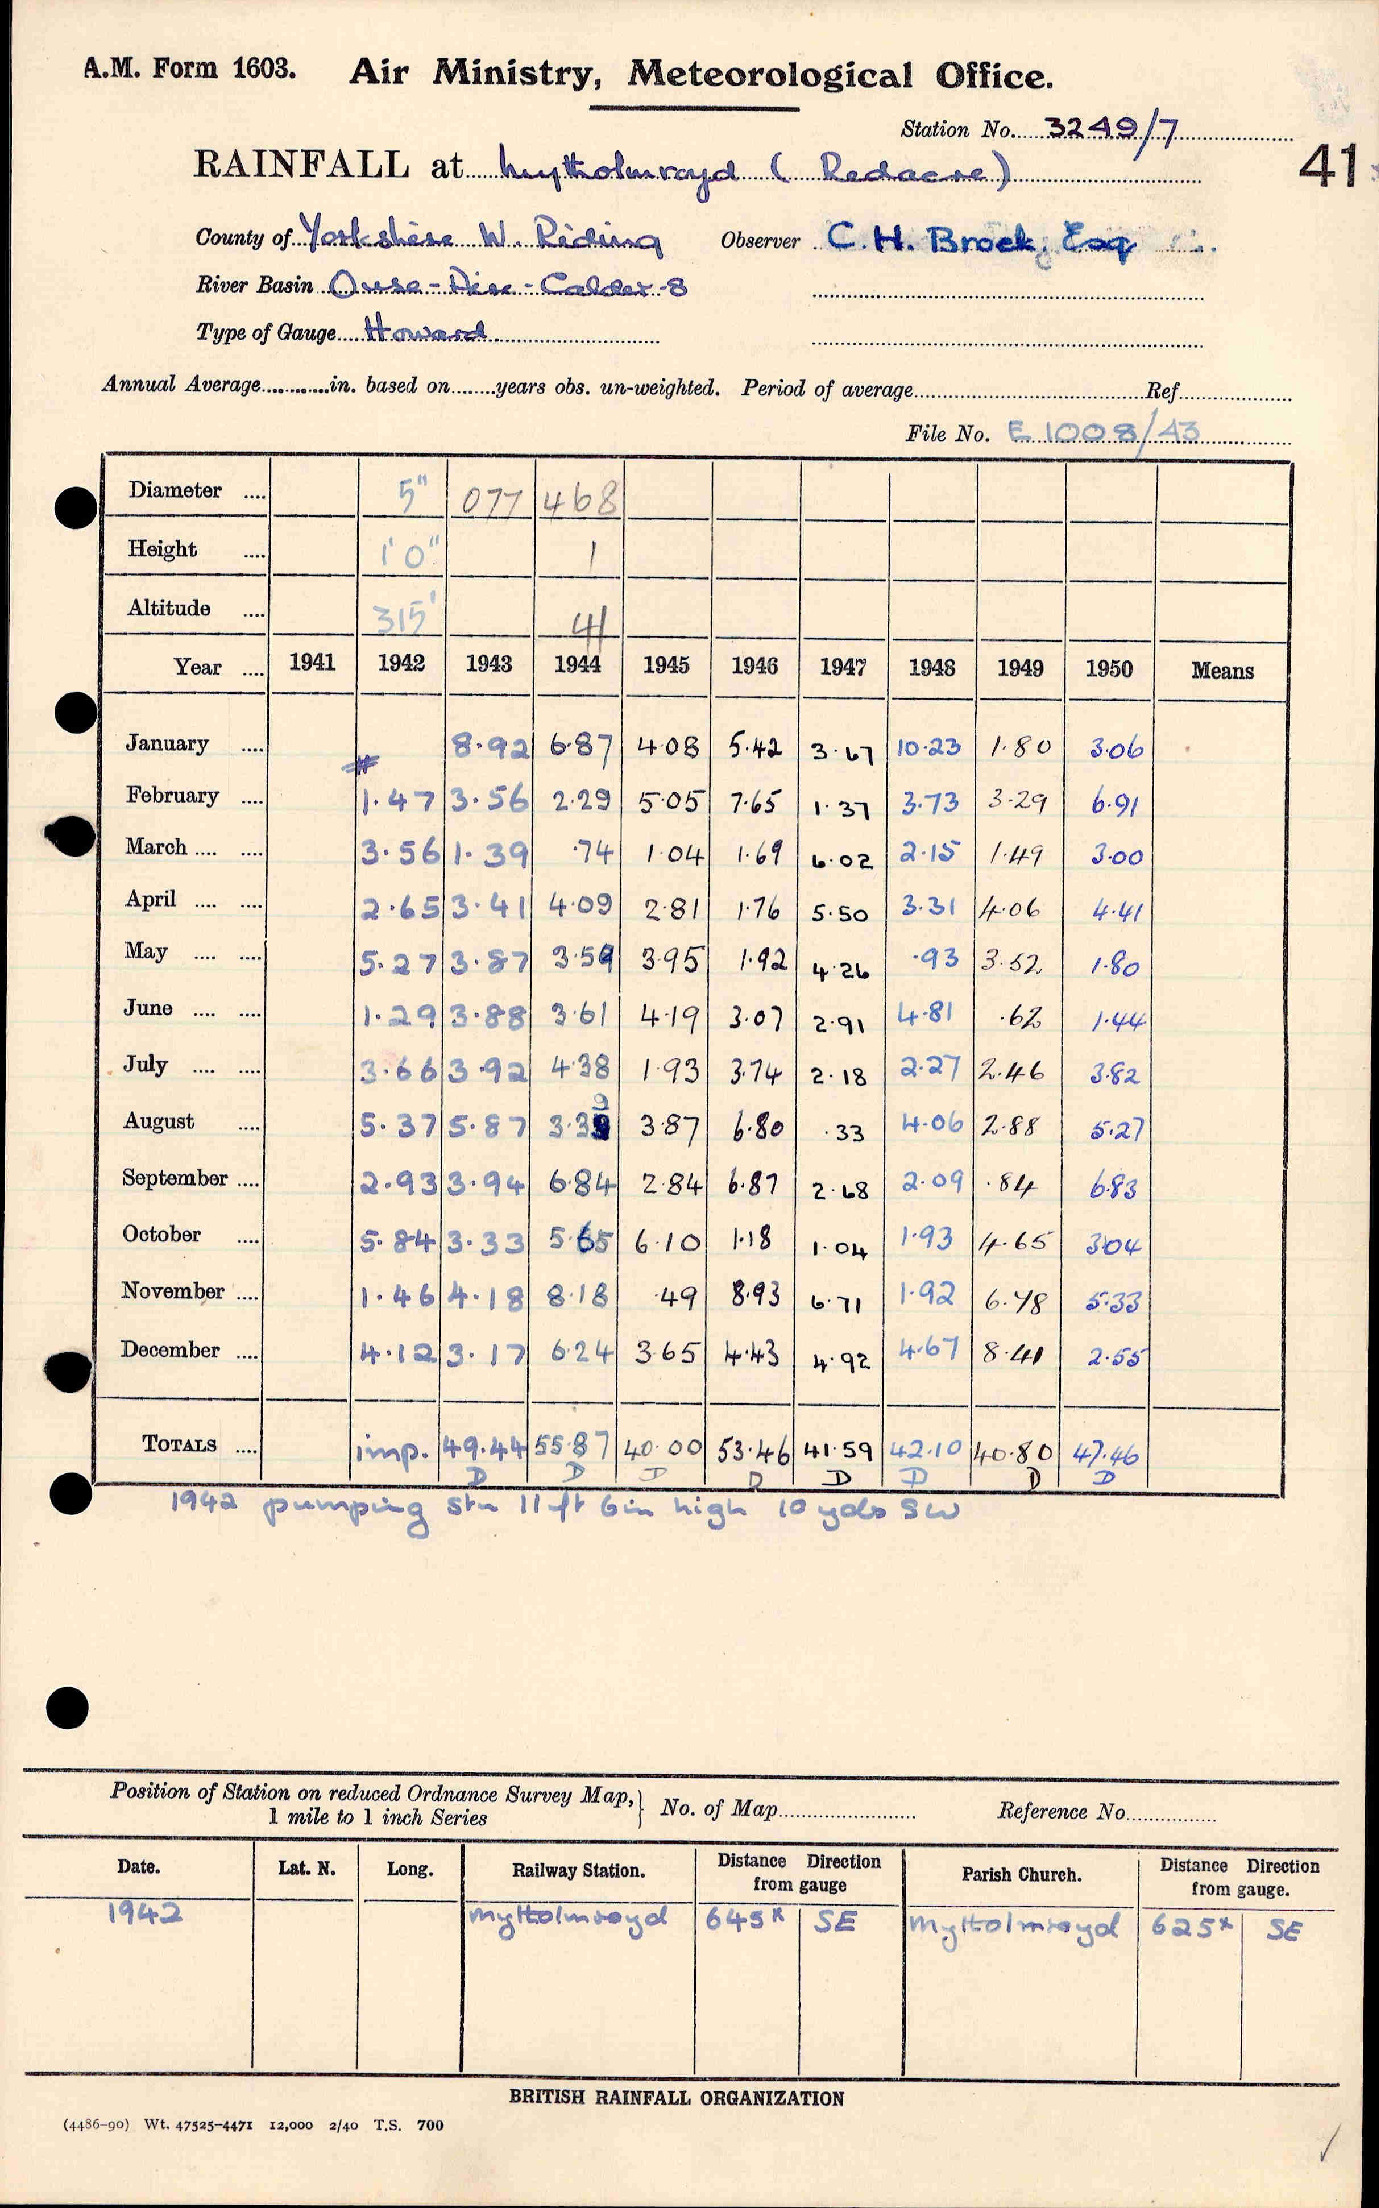 A.M. Form 1603. Air Ministry, Meteorological Office.
Station No. 3249/7
RAINFALL at Mytholmroyd ( Redacre )
41
County of Yorkshire W. Riding Observer C. H. Brock, Esq
River Basin Ouse - Aire - Calder - 8
Type of Gauge Howard
Annual Average............in. based on........years obs. un-weighted. Period of average............ Ref............
File No. E 1008/43
Diameter .... 5" 077 468
Height .... 1' 0" 1
Altitude .... 315' 41
Year .... 1941 1942 1943 1944 1945 1946 1947 1948 1949 1950 Means
January .... 8.92 6.87 4.08 5.42 3.67 10.23 1.80 3.06
February .... # 1.47 3.56 2.29 5.05 7.65 1.37 3.73 3.29 6.91
March .... .... 3.56 1.39 .74 1.04 1.69 6.02 2.15 1.49 3.00
April .... .... 2.65 3.41 4.09 2.81 1.76 5.50 3.31 4.06 4.41
May .... .... 5.27 3.87 3.59 3.95 1.92 4.26 .93 3.52 1.80
June .... .... 1.29 3.88 3.61 4.19 3.07 2.91 4.81 .62 1.44
July .... .... 3.66 3.92 4.38 1.93 3.74 2.18 2.27 2.46 3.82
August .... 5.37 5.87 3.39 3.87 6.80 .33 4.06 2.88 5.27
September .... 2.93 3.94 6.84 2.84 6.87 2.68 2.09 .84 6.83
October .... 5.84 3.33 5.65 6.10 1.18 1.04 1.93 4.65 3.04
November .... 1.46 4.18 8.18 .49 8.93 6.71 1.92 6.78 5.33
December .... 4.12 3.17 6.24 3.65 4.43 4.92 4.67 8.41 2.55
TOTALS .... imp. 49.44 55.87 40.00 53.46 41.59 42.10 40.80 47.46
D D D D D D D D
1942 pumping stn 11 ft 6 in high 10 yds SW
Position of Station on reduced Ordnance Survey Map, } No. of Map............ Reference No............
1 mile to 1 inch Series
Date. Lat. N. Long. Railway Station. Distance Direction from gauge Parish Church. Distance Direction from gauge.
1942 Mytholmroyd 645x SE Mytholmroyd 625x SE
BRITISH RAINFALL ORGANIZATION
(4486-90) Wt. 47525-4471 12,000 2/40 T.S. 700